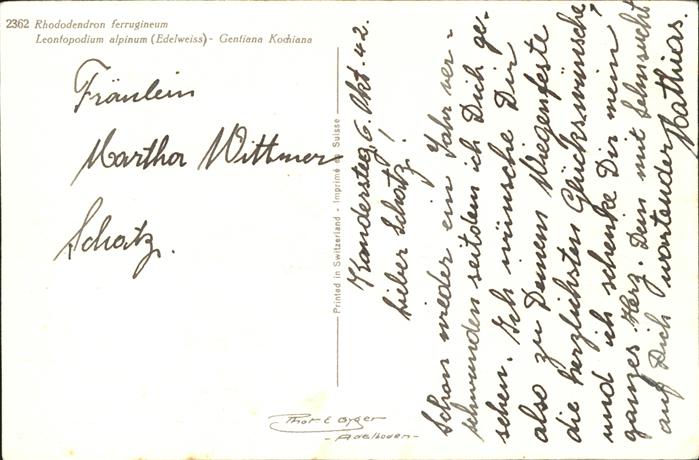 2362 Rhododendron ferrugineum
Leontopodium alpinum (Edelweiss) - Gentiana Kochiana
Fräulein
Martha Wittmer
Schatz.
Printed in Switzerland - Imprimé en Suisse
Kandersteg, 6. Okt. 42.
Lieber Schatz!
Schon wieder ein Jahr ver-
schwunden seitdem ich Dich ge-
sehen. Ich wünsche Dir
also zu Deinem Wiegenfeste
die herzlichsten Glückswünsche
und ich schenke Dir mein
ganzes Herz. Dein mit Sehnsucht
auf Dich wartender Mathias.
Phot E Gyger
- Adelboden -